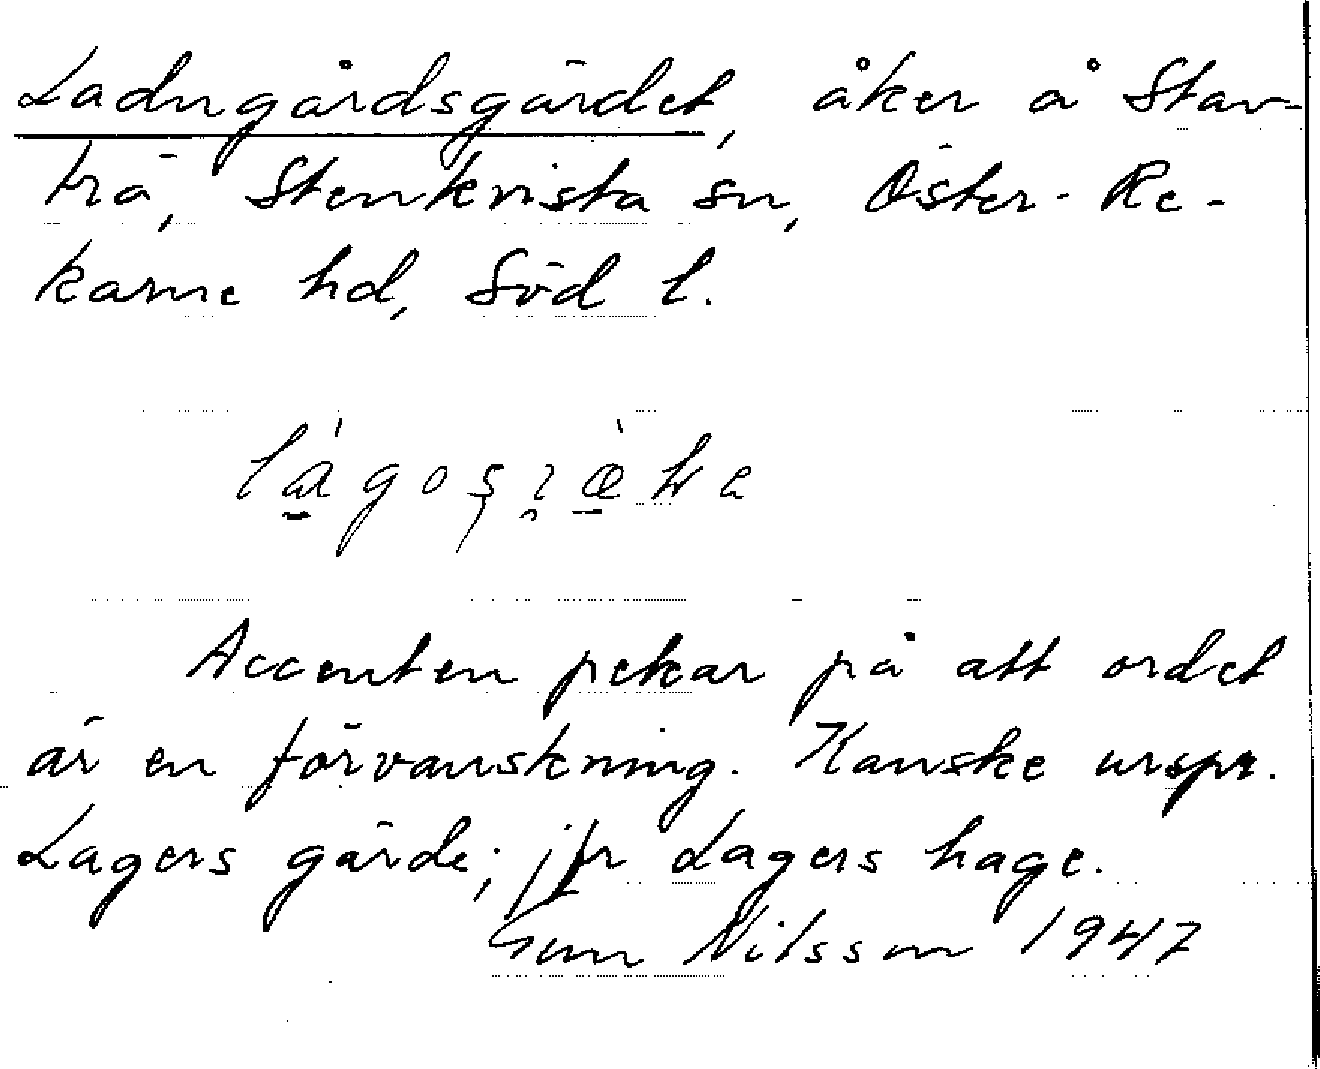 Ladugårdsgärdet, åker å Stav-
trä, Stenkvista sn, Öster-Re-
karne hd, Söd l.
Accenten pekar på att ordet
är en förvanskning. Kanske urspr.
Lagers gärde; jfr Lagers hage.
Gun Nilsson 1947